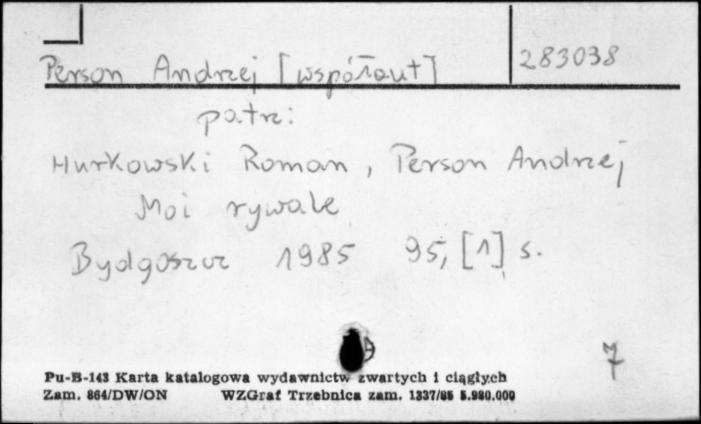 Person Andrzej [współaut] 283038
patrz:
Hurkowski Roman, Person Andrzej
Moi rywale
Bydgoszcz 1985 95, [1] s.
7
Pu-B-143 Karta katalogowa wydawnictw zwartych i ciągłych
Zam. 864/DW/ON WZGraf Trzebnica zam. 1337/85 5.980.000